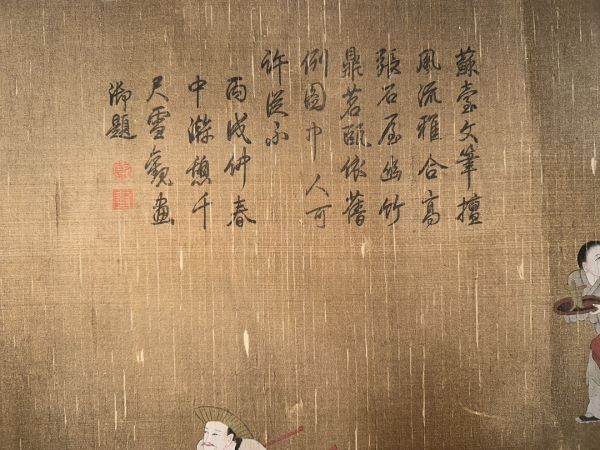 蘇臺文筆擅
風流雅合高
張石屋幽竹
鼎茗甌依舊
例圖中人可
許從不
丙戌仲春
中澣憩千
尺雪觀畫
御題